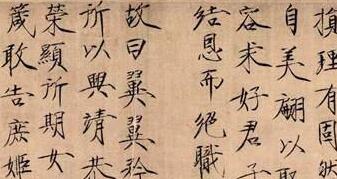 損理有固然
自美翩以取
容求好君子
結恩而絕職
故曰翼翼矜
所以興靖恭
榮顯所期女
箴敢告庶姬